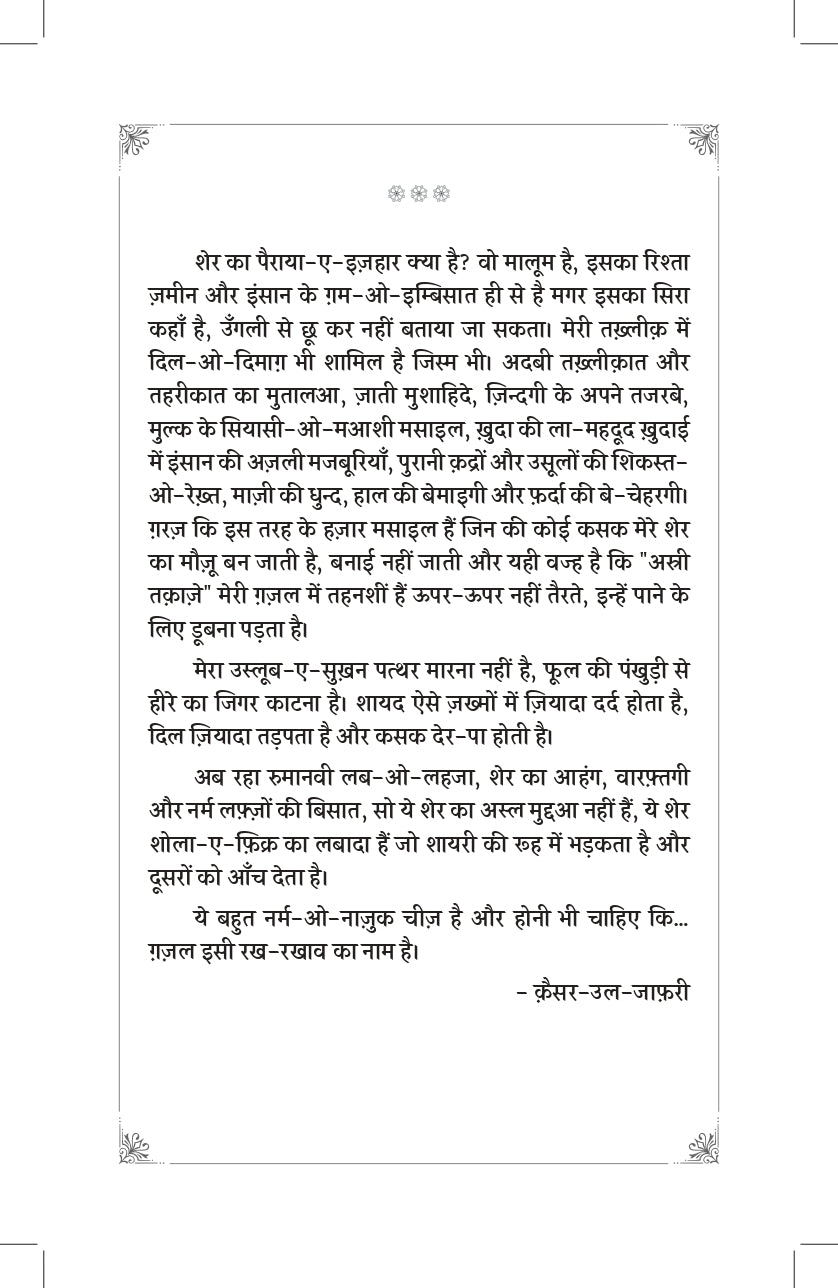 शेर का पैराया-ए-इज़हार क्या है? वो मालूम है, इसका रिश्ता
ज़मीन और इंसान के ग़म-ओ-इम्बिसात ही से है मगर इसका सिरा
कहाँ है, उँगली से छू कर नहीं बताया जा सकता। मेरी तख़्लीक़ में
दिल-ओ-दिमाग़ भी शामिल है जिस्म भी। अदबी तख़्लीक़ात और
तहरीकात का मुतालआ, ज़ाती मुशाहिदे, ज़िन्दगी के अपने तजरबे,
मुल्क के सियासी-ओ-मआशी मसाइल, ख़ुदा की ला-महदूद ख़ुदाई
में इंसान की अज़ली मजबूरियाँ, पुरानी क़द्रों और उसूलों की शिकस्त-
ओ-रेख़्त, माज़ी की धुन्द, हाल की बेमाइगी और फ़र्दा की बे-चेहरगी।
ग़रज़ कि इस तरह के हज़ार मसाइल हैं जिन की कोई कसक मेरे शेर
का मौज़ू बन जाती है, बनाई नहीं जाती और यही वज्ह है कि "अस्री
तक़ाज़े" मेरी ग़ज़ल में तहनशीं हैं ऊपर-ऊपर नहीं तैरते, इन्हें पाने के
लिए डूबना पड़ता है।
मेरा उस्लूब-ए-सुख़न पत्थर मारना नहीं है, फूल की पंखुड़ी से
हीरे का जिगर काटना है। शायद ऐसे ज़ख्मों में ज़ियादा दर्द होता है,
दिल ज़ियादा तड़पता है और कसक देर-पा होती है।
अब रहा रुमानवी लब-ओ-लहजा, शेर का आहंग, वारफ़्तगी
और नर्म लफ़्ज़ों की बिसात, सो ये शेर का अस्ल मुद्दआ नहीं हैं, ये शेर
शोला-ए-फ़िक्र का लबादा हैं जो शायरी की रूह में भड़कता है और
दूसरों को आँच देता है।
ये बहुत नर्म-ओ-नाज़ुक चीज़ है और होनी भी चाहिए कि...
ग़ज़ल इसी रख-रखाव का नाम है।
- क़ैसर-उल-जाफ़री